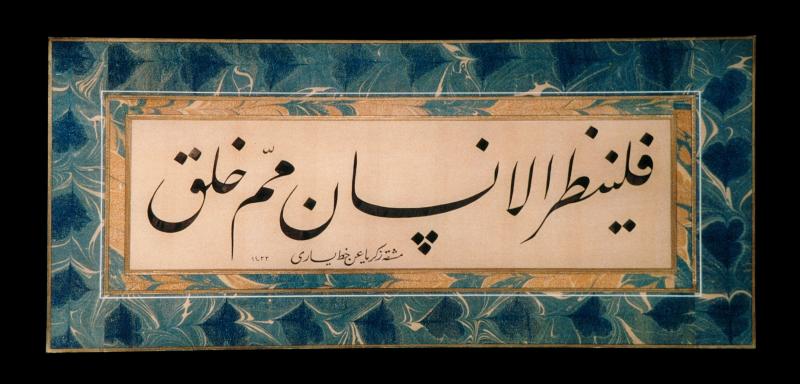 فلينظر الانسان ممّ خلق
مشقه زكريا عن خط يسارى